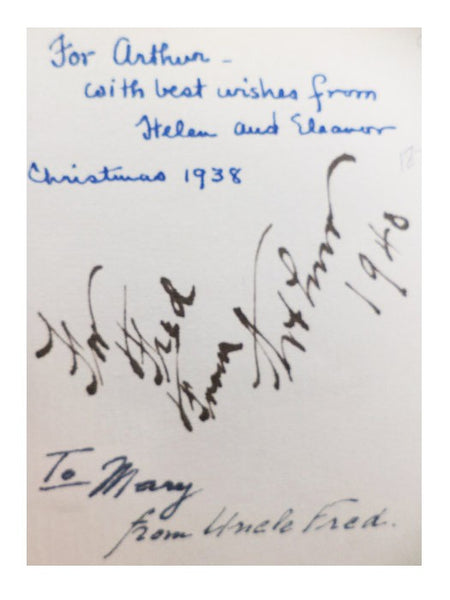 For Arthur -
with best wishes from
Helen and Eleanor
Christmas 1938
For Fred
From Arthur
1940
To Mary
from Uncle Fred.